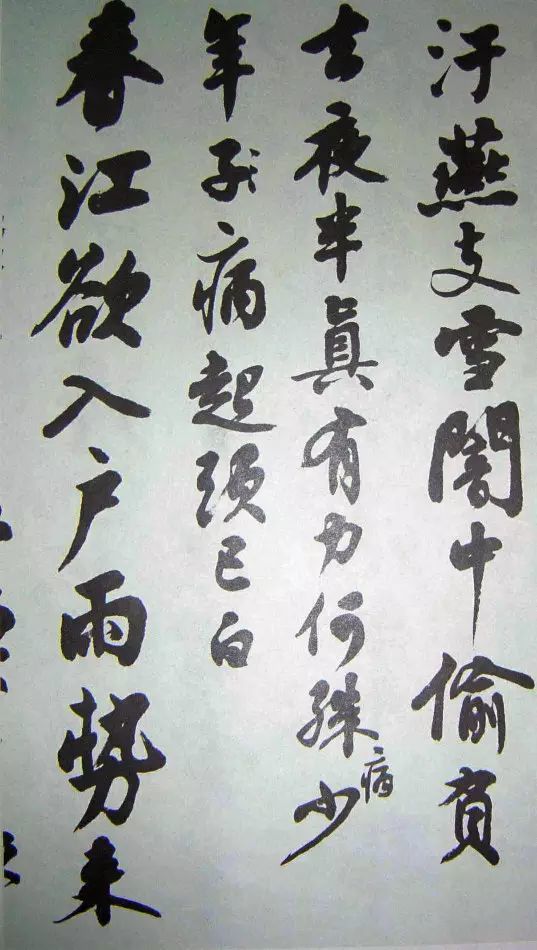 汙燕支雪闇中偷負
去夜半眞有力何殊病少
年子病起頭已白
春江欲入戶雨勢來